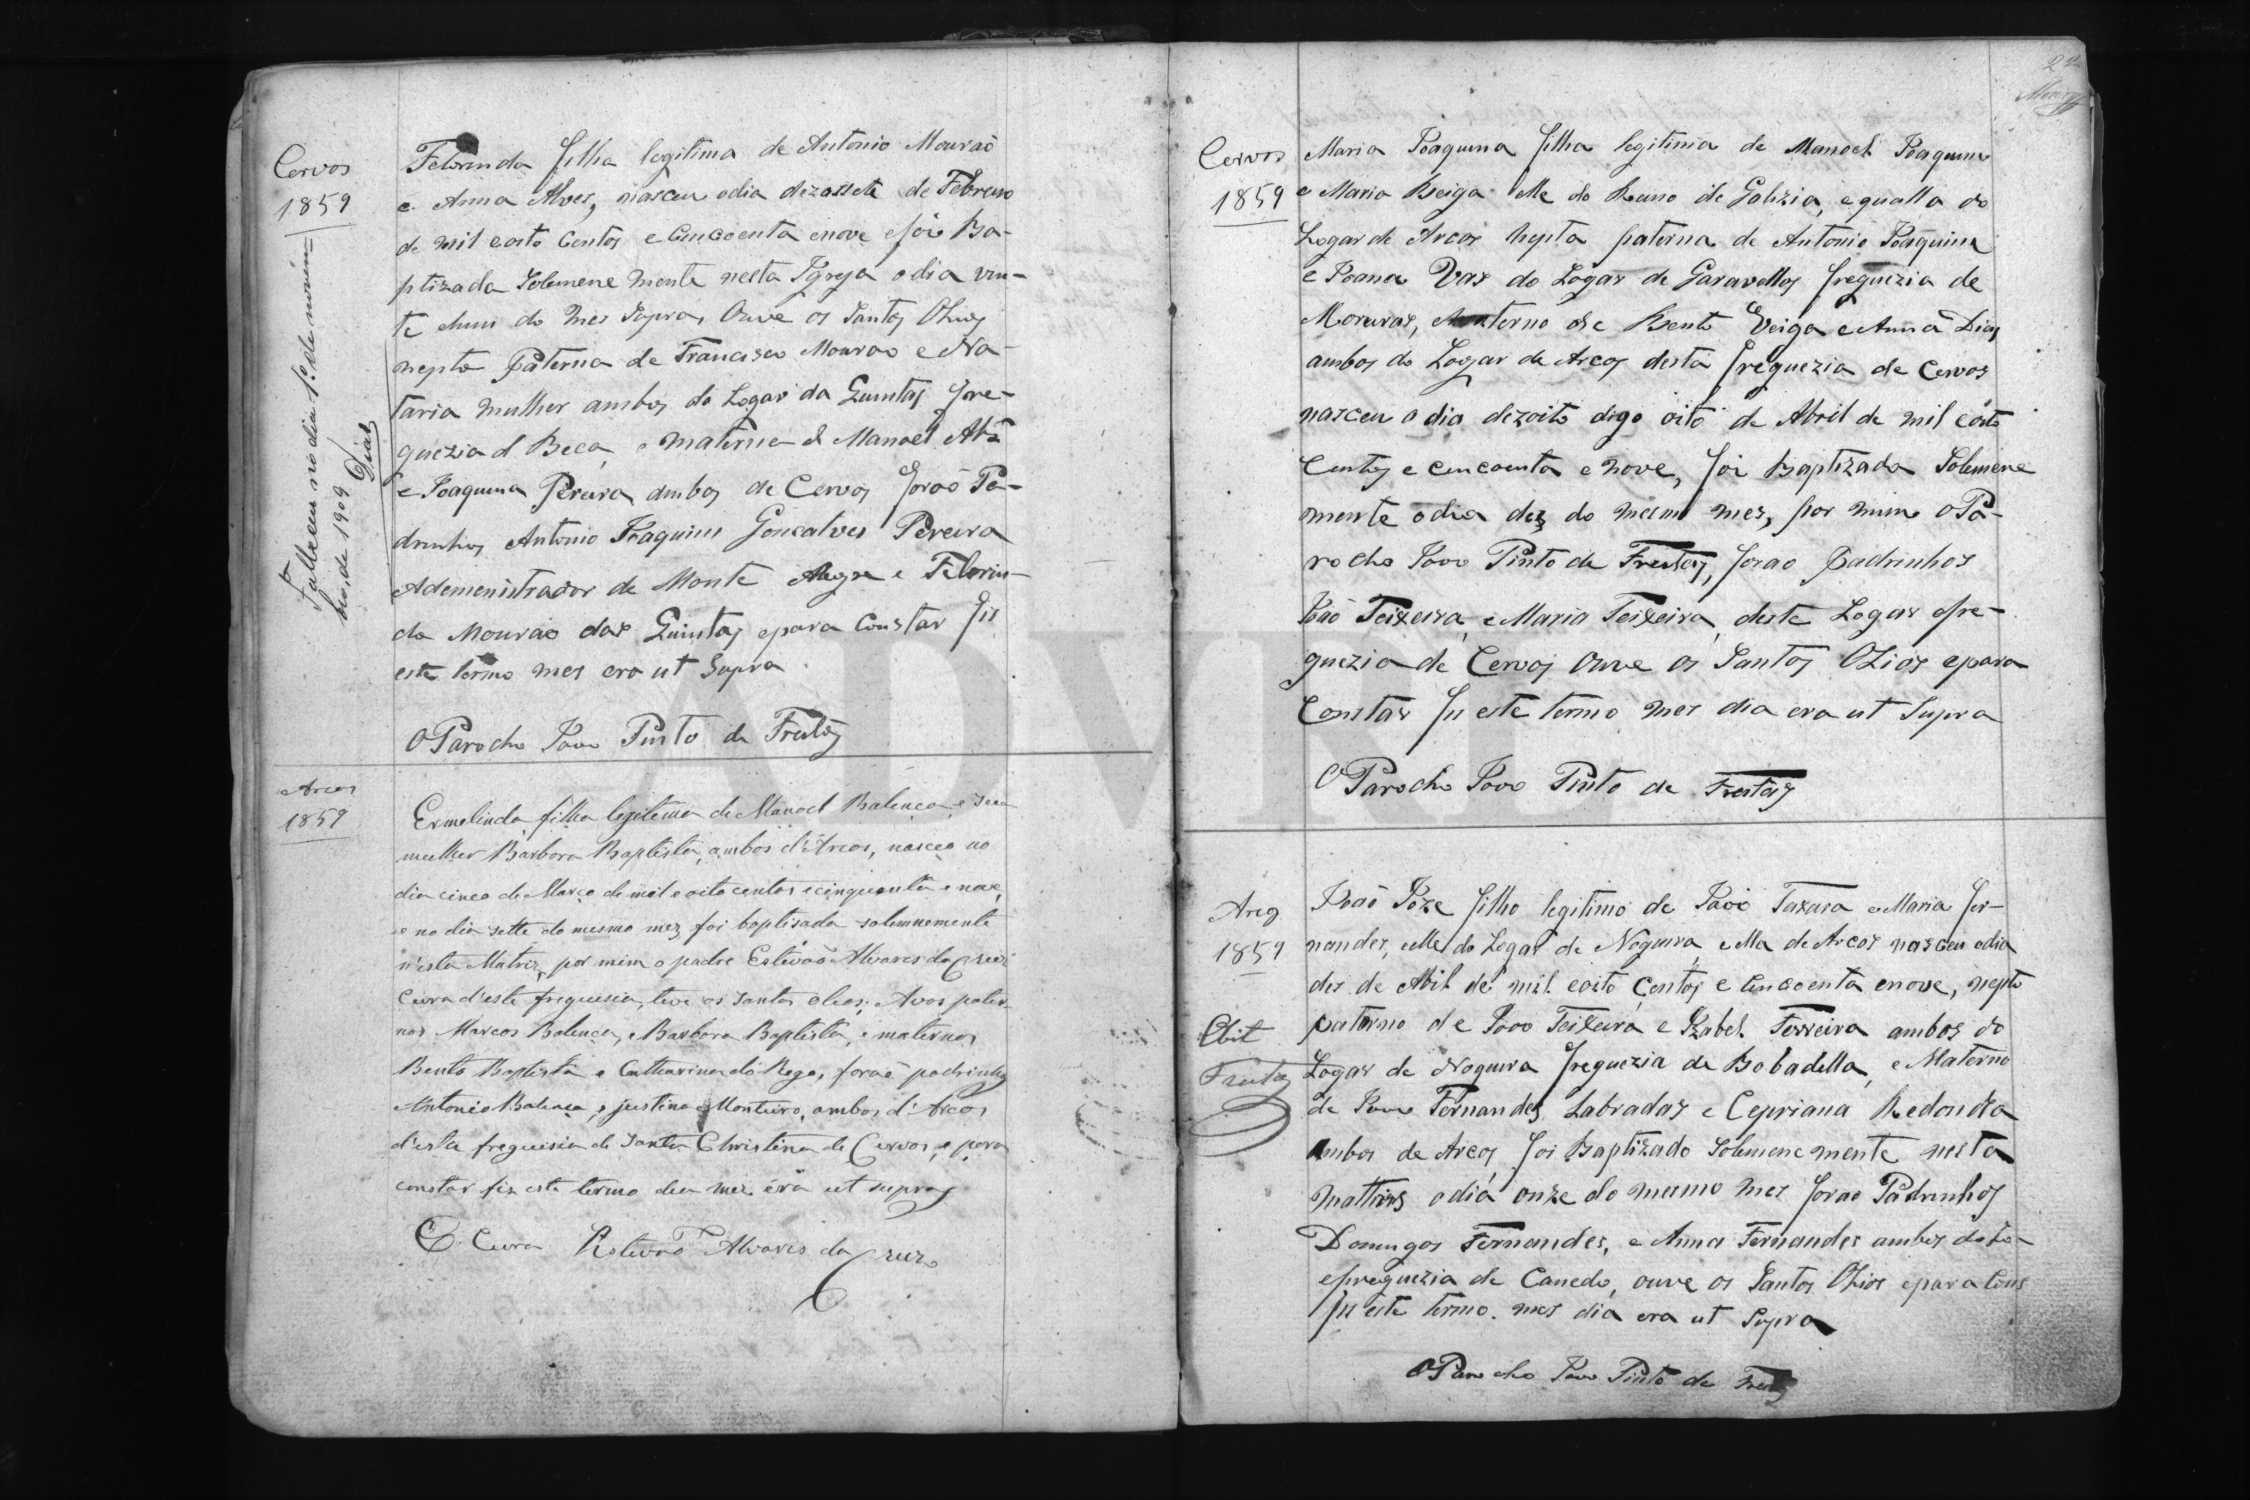 Cervos
1859
Falleceu no dia 1º de novem=
bro, de 1909
Dias
Felorinda filha legitima de Antonio Mourão
e Anna Alves, nasceu odia dezassete de Febreiro
de mil eoito Centos e Cincoenta enove efoi Ba-
ptizada Solemene mente nesta Igreja odia vin-
te ehum do mes Supra, Ouve os Santos Olios
nepta Paterna de Francisco Mourao e Na-
taria mulher ambos do Logar da Quintas fre-
guezia d Beca, e materna d Manoel Alz
e Joaquina Pereira ambos de Cervos forão Pa-
drinhos Antonio Joaquim Goncalves Pereira
Ademenistrador de Monte Alegre e Felorin-
da Mourão das Quintas epara Constar fis
este termo mes era ut Supra
O Parocho João Pinto de Freitas
Arcos
1859
Ermelinda, filha legitema de Manoel Balenca, e sua
mulher Barbora Baptista, ambos d'Arcos, nasceo no
dia cinco de Março de mil e oito centos e cinquenta e nove,
e no dia sette do mesmo mez foi baptisada solemnemente
n'esta Matriz, por mim o padre Estevaõ Alvares da Cruz
Cura d'esta freguesia, teve os santos oleos; Avos pater-
nos Marcos Balenca, e Barbora Baptista, e maternos
Bento Baptista e Catharina do Rego, foraõ padrinhos
Antonio Balenca, e justina Monteiro, ambos d'Arcos
d'esta freguesia de Santa Christina de Cervos, e para
constar fiz este termo dia mez éra ut supra
O Cura Estevaõ Alvares da Cruz
22
Cervos
1859
Maria Joaquina filha legitima de Manoel Joaquim
e Maria Beiga elle do Reino de Galizia, equella do
Logar de Arcos nepta paterna de Antonio Joaquim
e Joana Vas do Logar de Garavellos freguezia de
Moruras, Materno de Bento Veiga e Anna Dias
ambos do Logar de Arcos desta freguezia de Cervos
nasceu o dia dezoito digo oito de Abril de mil eoito
Centos e cincoenta e nove, foi Baptizada Solemene
mente odia dez do mesmo mes, por mim o Pa-
rocho João Pinto de Freitas, forao Padrinhos
João Teixeira, e Maria Teixeira, deste Logar efre-
guezia de Cervos ouve os Santos Olios epara
Constar fis este termo mes dia era ut Supra
O Parocho João Pinto de Freitas
Arcos
1859
Obit
Freitas
João Joze filho legitimo de João Taxara e Maria Fer-
nandes, elle do Logar de Nogueira, ella de Arcos nasceu odia
des de Abil de mil eoito Centos e Cincoenta enove, nepto
paterno de João Teixeira e Izabel Ferreira ambos do
Logar de Noguira freguezia de Bobadella, e Materno
de João Fernandes Labradas e Cepriana Redonda
ambos de Arcos foi Baptizado Solemene mente nesta
mattris odia onze do mesmo mes forao Padrinhos
Domingos Fernandes, e Anna Fernandes ambos do Lo-
efreguezia de Canedo, ouve os Santos Olios epara Cons
fis este termo. mes dia era ut Supra
O Parocho João Pinto de Freitas
ADVRL